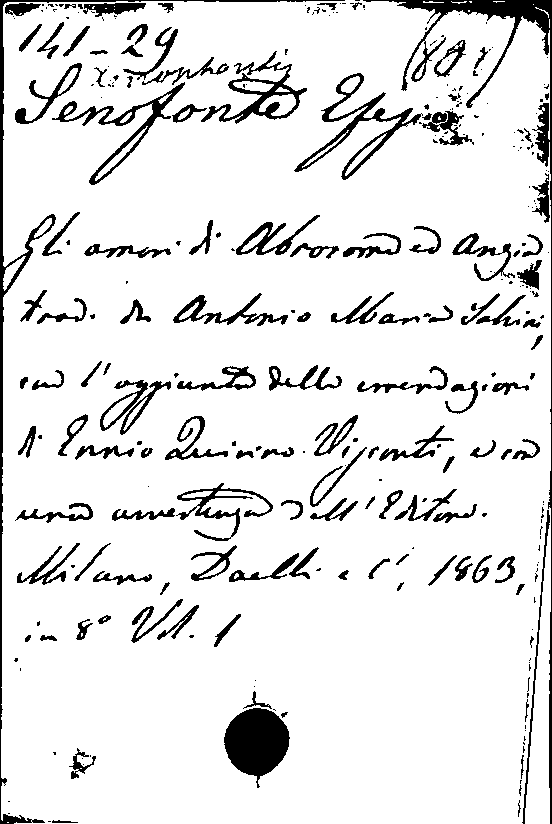 141-29 (881)
Xenophontis
Senofonte Efesio
Gli amori di Abrocome ed Anzia,
trad. da Antonio Maria Salvini,
con l'aggiunta delle emendazioni
di Ennio Quirino Visconti, e con
una avvertenza dell'Editore.
Milano, Daelli e C.i, 1863,
in 8º Vol. 1